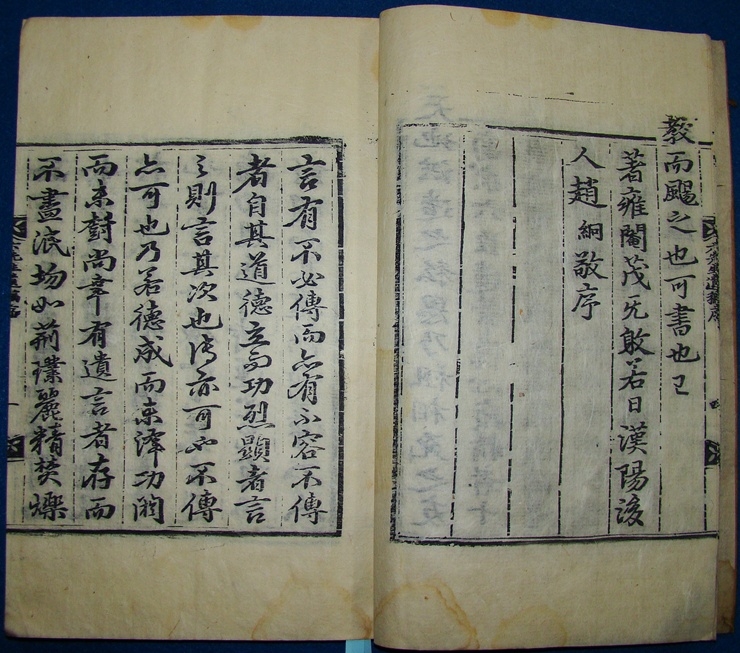 教而賜之也可書也已
著雍閹茂旡敢若日漢陽後
人趙絅敬序
言有不必傳而亦有不容不傳
者自其道德立而功烈顯者言
之則言其次也傳亦可也不傳
亦可也乃若德成而未澤功閎
而未對尚幸有遺言者存而
不盡泯場如荊璞麗精焚爍